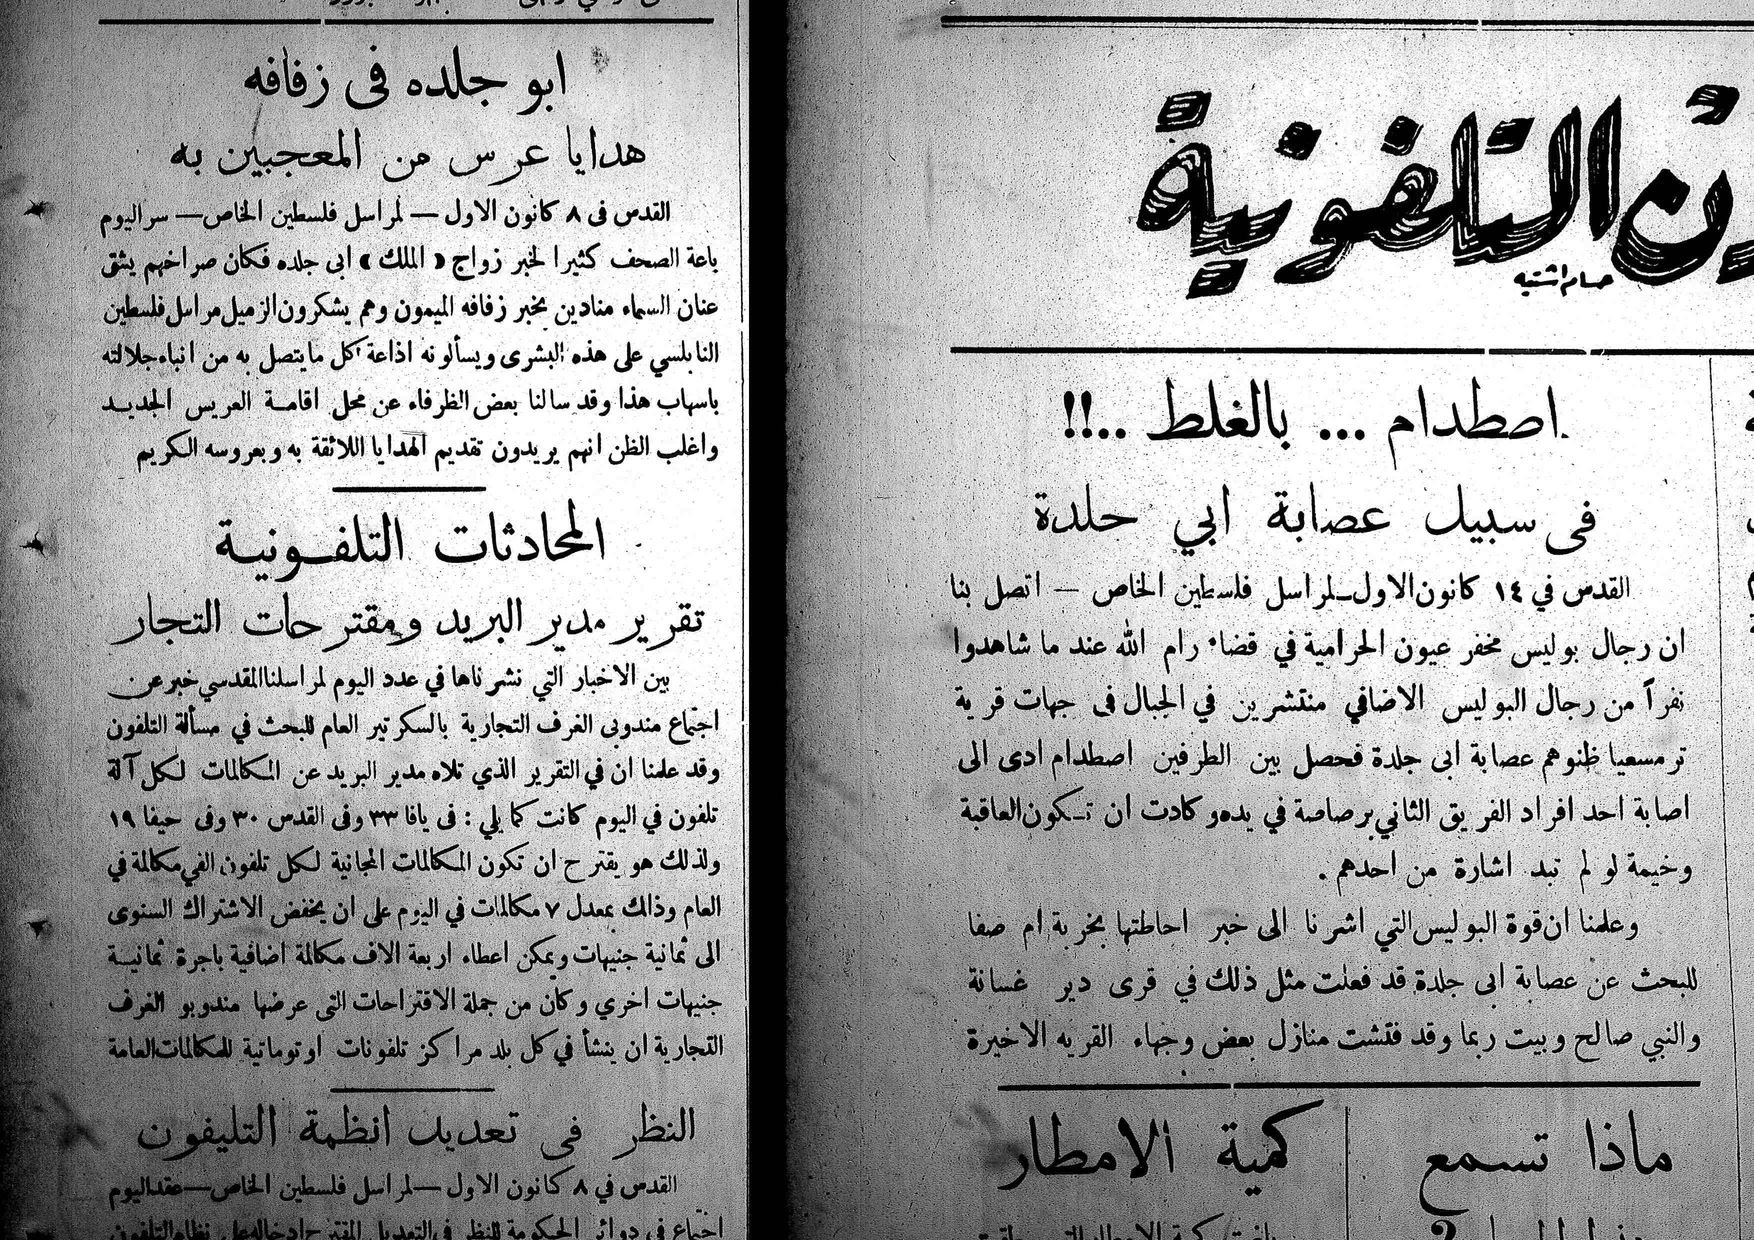 ابو جلده فى زفافه
هدايا عرس من المعجبين به
القدس فى ٨ كانون الاول — لمراسل فلسطين الخاص — سر اليوم
باعة الصحف كثيرا لخبر زواج « الملك » ابى جلده فكان صراخهم يشق
عنان السماء منادين بخبر زفافه الميمون وهم يشكرون الزميل مراسل فلسطين
النابلسي على هذه البشرى ويسألونه اذاعة كل ما يتصل به من انباء جلالته
باسهاب هذا وقد سالنا بعض الظرفاء عن محل اقامة العريس الجديد
واغلب الظن انهم يريدون تقديم الهدايا اللائقة به وبعروسه الكريم
المحادثات التلفونية
تقرير مدير البريد ومقترحات التجار
بين الاخبار التي نشرناها في عدد اليوم لمراسلنا المقدسي خبر عن
اجتماع مندوبى الغرف التجارية بالسكرتير العام للبحث في مسألة التلفون
وقد علمنا ان في التقرير الذي تلاه مدير البريد عن المكالمات لكل آلة
تلفون في اليوم كانت كما يلي : فى يافا ٣٣ وفى القدس ٣٠ وفى حيفا ١٩
ولذلك هو يقترح ان تكون المكالمات المجانية لكل تلفون الفي مكالمة في
العام وذالك بمعدل ٧ مكالمات في اليوم على ان يخفض الاشتراك السنوى
الى ثمانية جنيهات ويمكن اعطاء اربعة الاف مكالمة اضافية باجرة ثمانية
جنيهات اخري وكان من جملة الاقتراحات التى عرضها مندوبو الغرف
التجارية ان ينشأ في كل بلد مراكز تلفونات اوتوماتية للمكالمات العامة
النظر فى تعديل انظمة التليفون
القدس في ٨ كانون الاول — لمراسل فلسطين الخاص — عقد اليوم
اجتماع في دوائر الحكومة للنظر في التعديل المقترح ادخاله على نظام التلفون
التلفونية
اصطدام ... بالغلط ..!!
فى سبيل عصابة ابي جلدة
القدس في ١٤ كانون الاول — لمراسل فلسطين الخاص — اتصل بنا
ان رجال بوليس مخفر عيون الحرامية في قضاء رام الله عند ما شاهدوا
نفراً من رجال البوليس الاضافي منتشرين في الجبال فى جهات قرية
ترمسعيا ظنوهم عصابة ابى جلدة فحصل بين الطرفين اصطدام ادى الى
اصابة احد افراد الفريق الثاني برصاصة في يده وكادت ان تكون العاقبة
وخيمة لو لم تبد اشارة من احدهم .
وعلمنا ان قوة البوليس التي اشرنا الى خبر احاطتها بخربة ام صفا
للبحث عن عصابة ابى جلدة قد فعلت مثل ذلك في قرى دير غسانة
والنبي صالح وبيت ريما وقد فتشت منازل بعض وجهاء القريه الاخيرة
ماذا تسمع
كمية الامطار